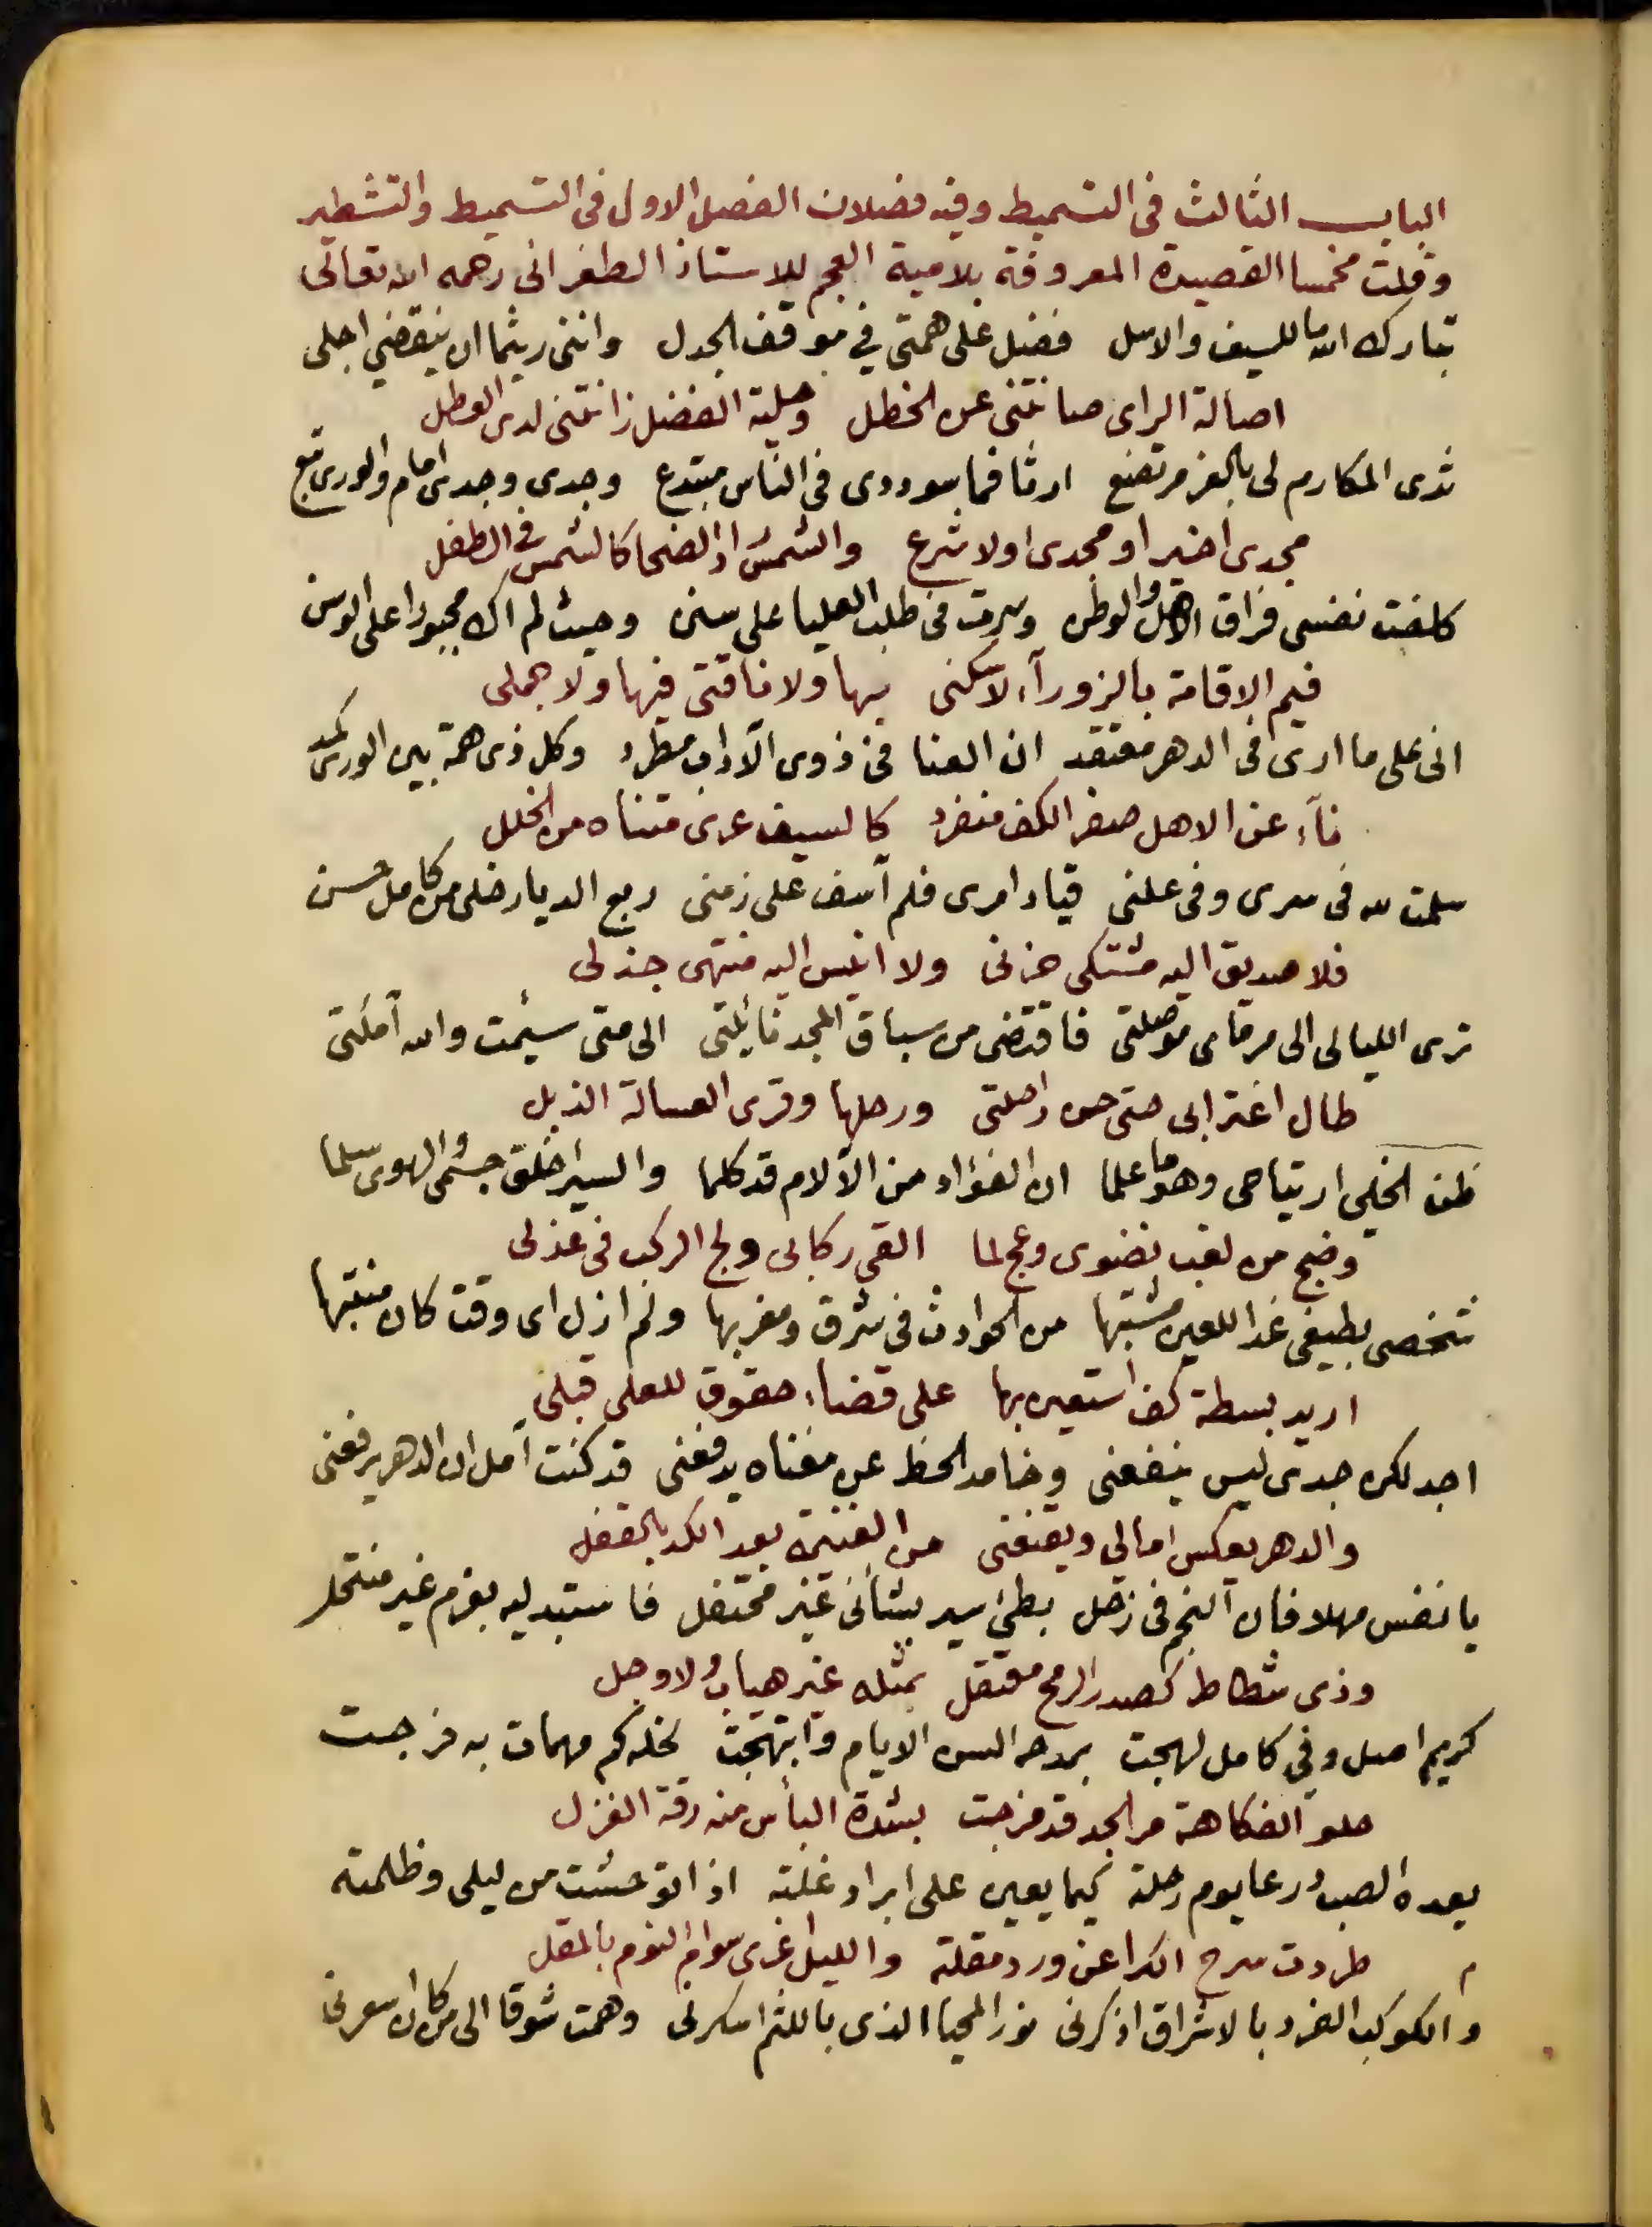 الباب الثالث فى التسميط وفيه فصلان الفصل الاول فى التسميط والتشطير
وقلت مخمسا القصيدة المعروفة بلامية العجم للاستاذ الطغرانى رحمه الله تعالى
تبارك الله ما للسيف والاسل فضل على همتى في موقف الجدل واننى ريثما ان ينقضي اجلى
اصالة الراى صانتنى عن الخطل وحلية الفضل زانتنى لدى العطل
ثدى المكارم لى بالعز مرتضع ارثا فما سوددى فى الناس مبتدع وجدى وجدى امام والورى تبع
مجدى اخيرا ومجدى اولا شرع والشمس راد الضحا كالشمس فى الطفل
كلفت نفسى فراق الاهل والوطن وسرت فى طلب العليا على سنن وحيث لم اك مجبورا على الوسن
فيم الاقامة بالزورآء لا سكنى بها ولا ناقتى فيها ولا جملى
انى على ما ارى فى الدهر معتقد ان العنا فى ذوى الآداب مطرد وكل ذى همة بين الورى كمد
نآء عن الاهل صفر الكف منفرد كالسيف عرى متناه من الخلل
سلمت لله فى سرى وفى علنى قياد امرى فلم آسف على زمنى ربع الديار خلى من كامل حسن
فلا صديق اليه مشتكى حزنى ولا انيس اليه منتهى جذلى
ترى الليالى الى مرماى موصلتى فاقتضى من سباق المجد نائلتى الى متى سئمت والله آملتى
طال اغترابى حتى حن راحلتى ورحلها وقرى العسالة الذبل
ظن الخلى ارتياحى وهو ما علما ان الفؤاد من الآلام قد كلما والسير اخلق جسمى والهوى سلما
وضج من لغب نضوى وعج لما القى ركابى ولج الركب فى عذلى
شخصى بطيفى غدا للعين مشتبها من الحوادث فى شرق ومغربها ولم ازل اى وقت كان منتبها
اريد بسطة كف استعين بها على قضاء حقوق للعلى قبلى
اجد لكن جدى ليس ينفعنى وخامد الحظ عن مغناه يدفعنى قد كنت آمل ان الدهر يرفعنى
والدهر يعكس امالى ويقنعنى من الغنيمة بعد الكد بالقفل
يا نفس مهلا فان النجم فى زحل بطئ سير بشأنى غير محتفل فاستبدليه بعزم غير منتحل
وذى شطاط كصدر الرمح معتقل بمثله غير هياب ولا وجل
كريم اصل وفي كامل لهجت بمدحه السن الايام وابتهجت لخله كم مهمات به فرجت
حلو الفكاهة مر الجد قد مزجت بشدة البأس منه رقة الغزل
يعده الصب درعا يوم رحلة كيما يعين على ابراد غلته اذا توحشت من ليلى وظلمته
طردت سرح الكرا عن ورد مقلته والليل اغرى سوام النوم بالمقل
والكوكب الفرد بالاشراق اذكرنى نور المحيا الذى باللثم اسكرنى وهمت شوقا الى من كان اسعرنى